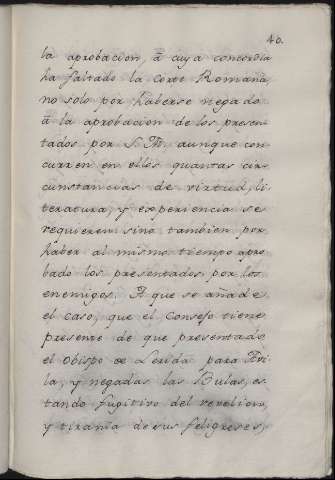 40.
la aprobacion, â cuya concordia
ha faltado la corte Romana,
no solo por haberse negado
â la aprobacion de los presen
tados por S. M. aunque con
curren en ellos quantas cir
cunstancias de virtud, li
teratura, y experiencia se
requieren sino tambien por
haber al mismo tiempo apro
bado los presentados por los
enemigos. A que se añade
el caso, que el Consejo tiene
presente de que presentado
el Obispo de Lerida para Avi
la, y negadas las Bulas, es
tando fugitivo del revelion,
y tirania de sus feligreses,